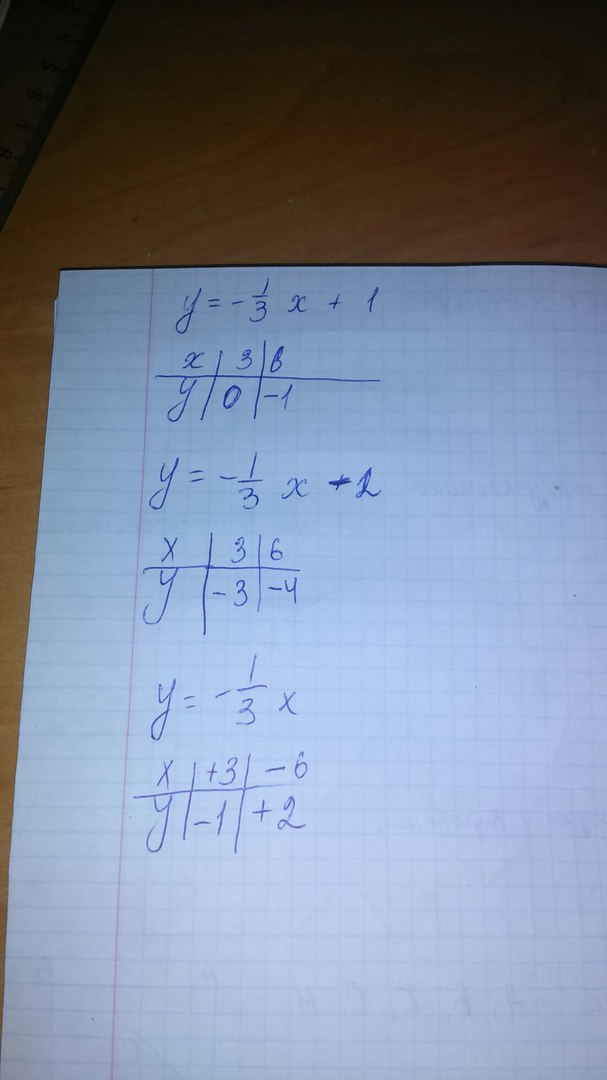 y = -1/3 x + 1
x | 3 | 6
y | 0 | -1
y = -1/3 x - 2
x | 3 | 6
y | -3 | -4
y = -1/3 x
x | +3 | -6
y | -1 | +2